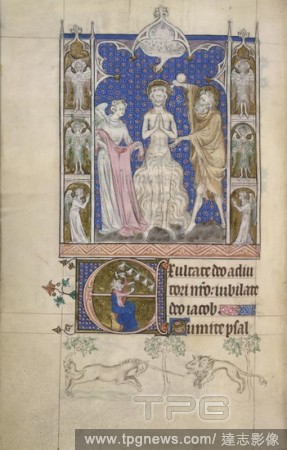 Exultate deo adiu
tori nr̄o: iubilate
deo iacob
Sumite psal
TPG
www.tpgnews.com/達志影像